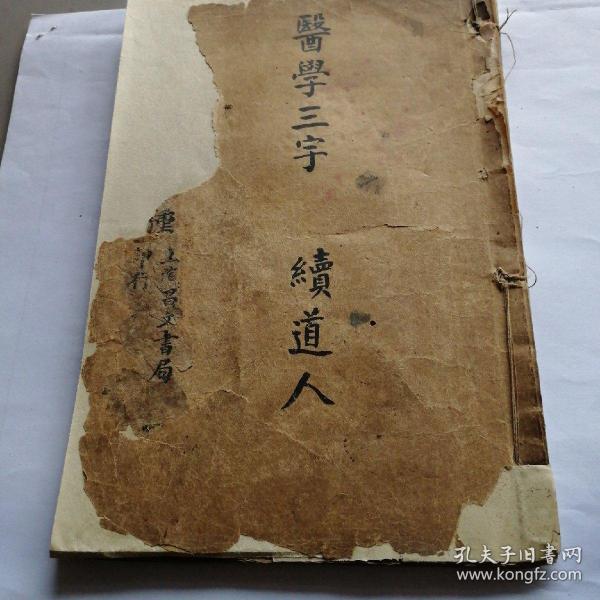 醫學三字
續道人
上海昌文書局
印行
孔夫子旧书网
www.kongfz.com